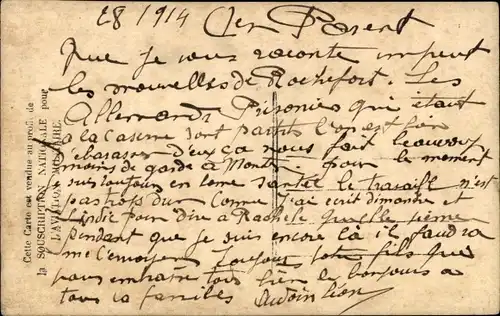 28/1914
Cher Parent
Que je vous raconte un peut
les nouvelles de Rochefort. Les
Allemands Prisonies qui était
a la Caserne sont partis l'on est bien
ébarasés d'eux ça nous fait beaucoup
moins de garde à Monté. pour le moment
suis toujours en bonne santée le travail n'est
pas trop dur Comme J'ai écrit dimanche et
Lindie pour dire a Rachele quelle
pendant que je suis encore là il faudra
me l'envoyer. Toujours votre fils que
vous embrasse tous bien le bonjours a
tous la familles
(Cette Carte est vendue au profit de
la SOUSCRIPTION NATIONALE pour
L'AVIATION MILITAIRE.